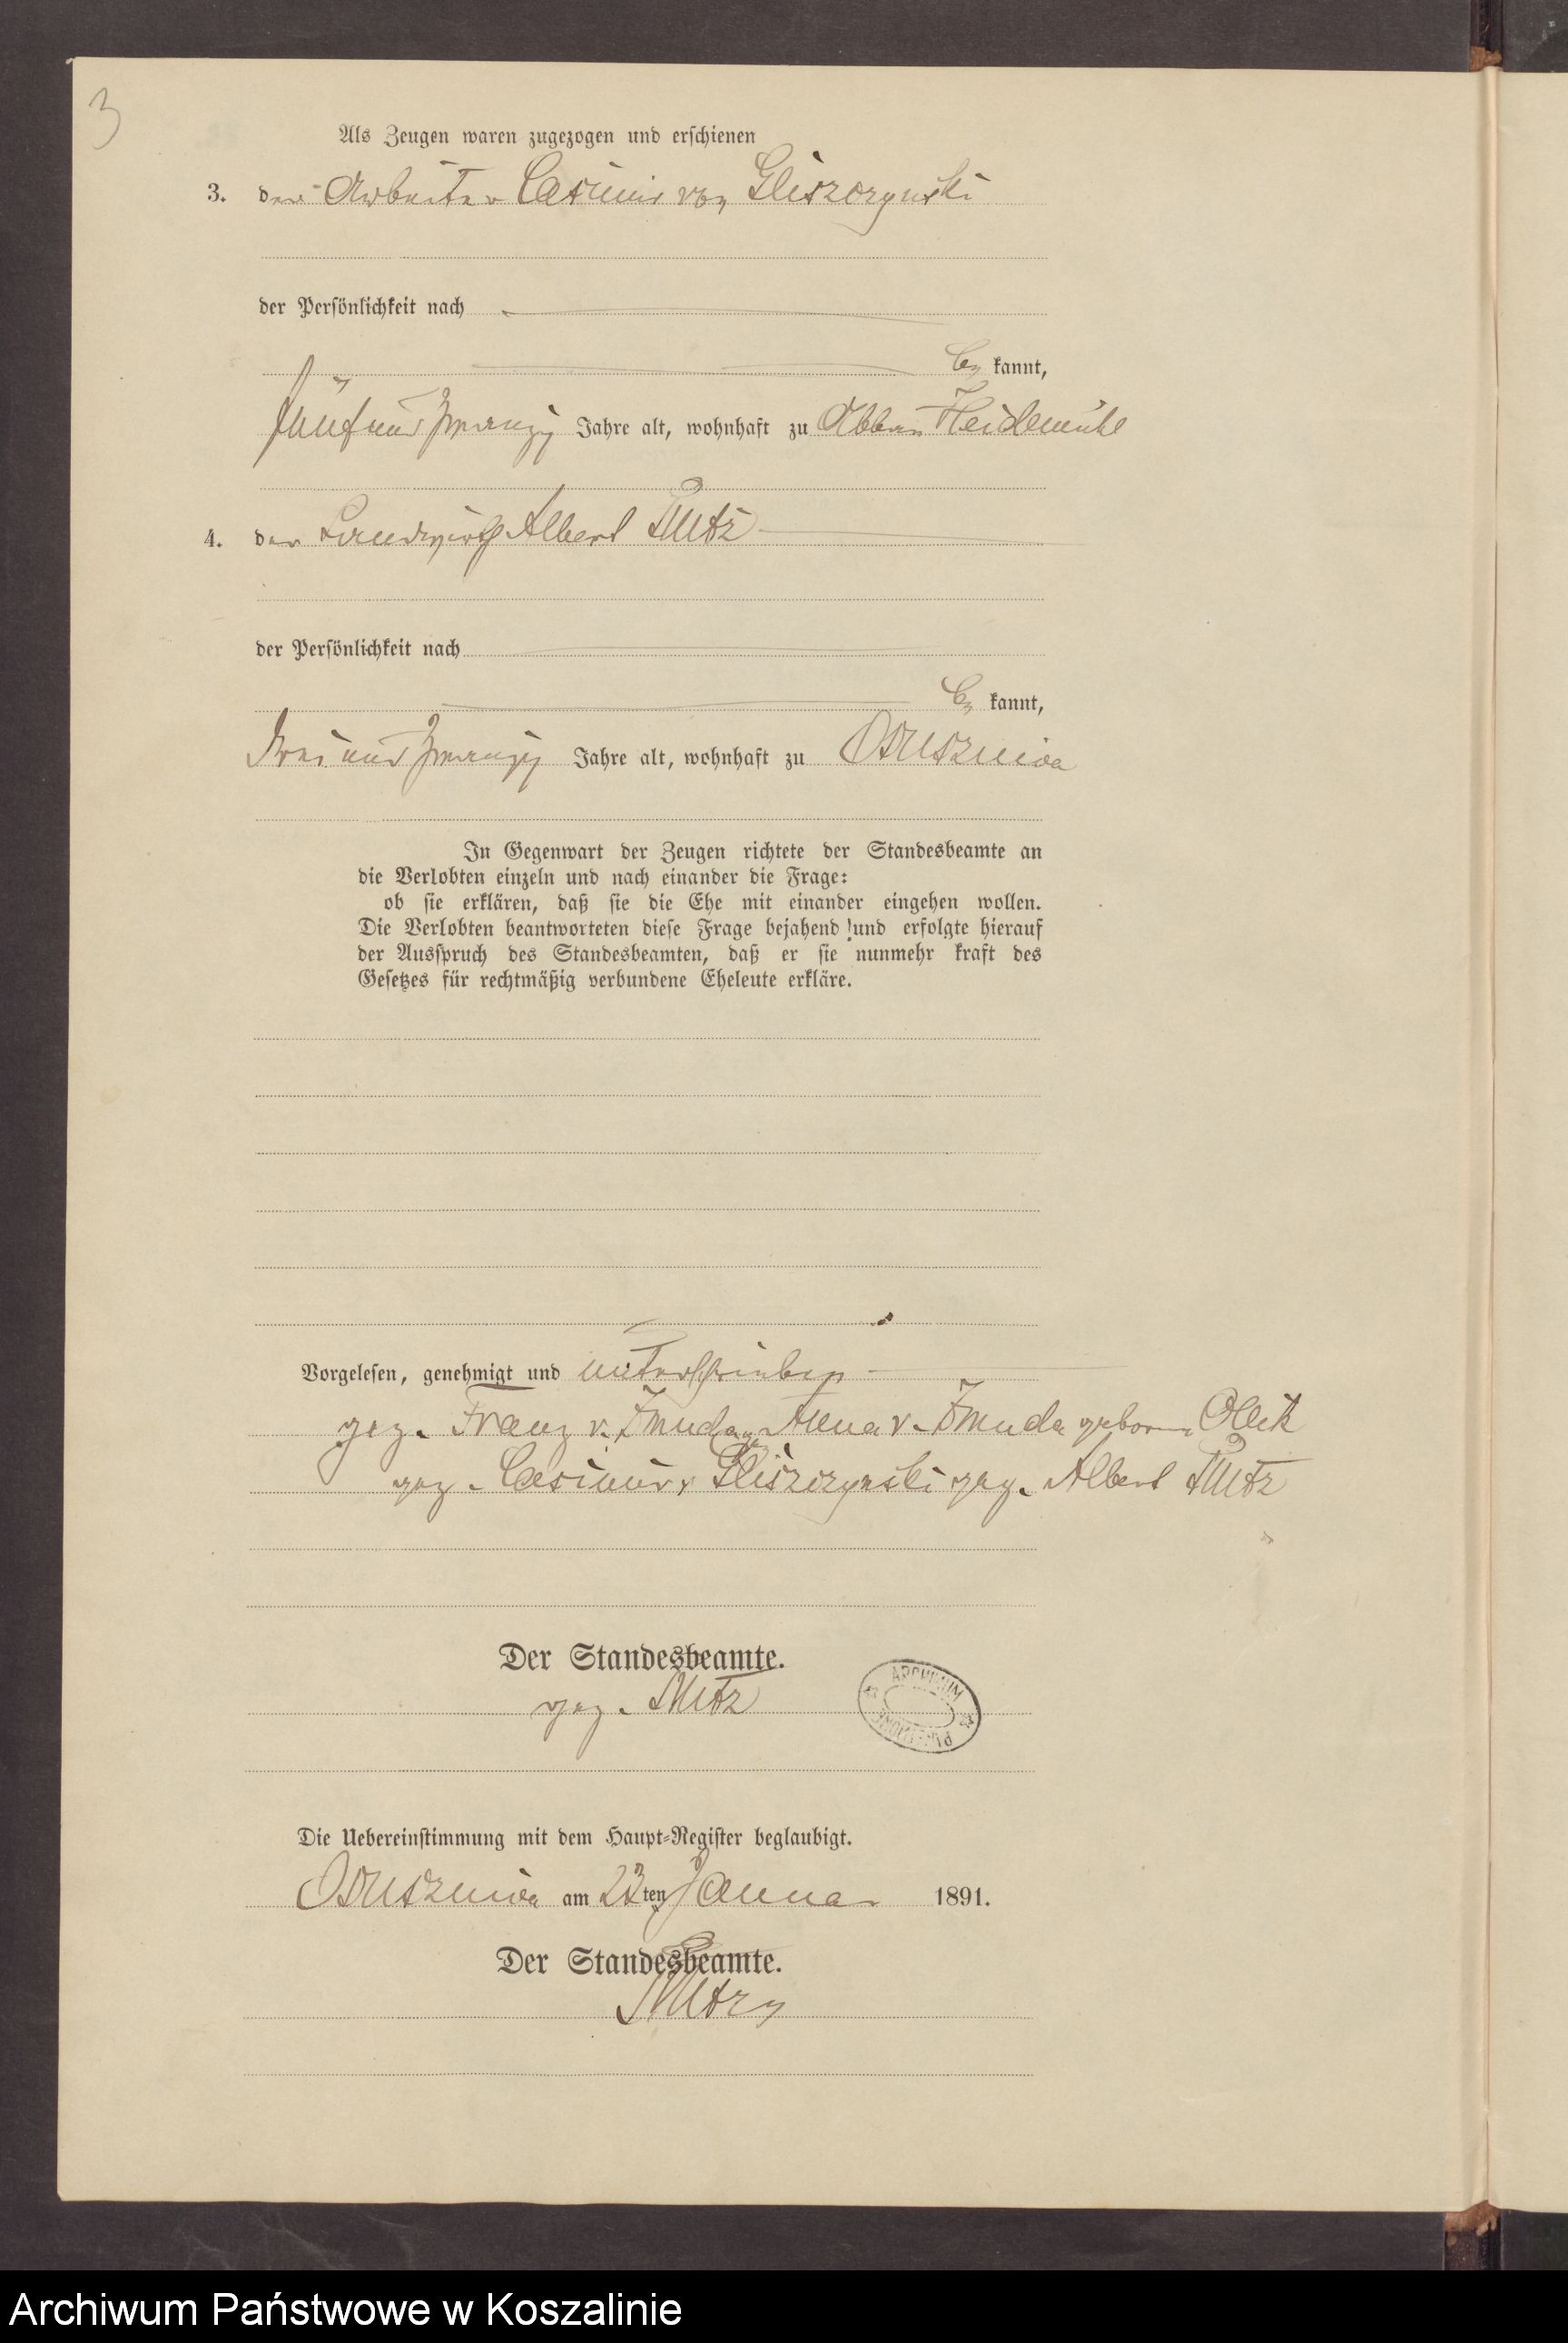 3
Als Zeugen waren zugezogen und erschienen
3. der Arbeiter Casimir von Gliszczynski
der Persönlichkeit nach
be kannt,
fünfundzwanzig Jahre alt, wohnhaft zu Abbau Heidemühl
4. der Landwirth Albert
der Persönlichkeit nach
be kannt,
drei und zwanzig Jahre alt, wohnhaft zu Ossusznica
In Gegenwart der Zeugen richtete der Standesbeamte an
die Verlobten einzeln und nach einander die Frage:
ob sie erklären, daß sie die Ehe mit einander eingehen wollen.
Die Verlobten beantworteten diese Frage bejahend und erfolgte hierauf
der Ausspruch des Standesbeamten, daß er sie nunmehr kraft des
Gesetzes für rechtmäßig verbundene Eheleute erkläre.
Vorgelesen, genehmigt und unterschrieben
gez. Franz v. Zmuda gez. Anna v. Zmuda geborene
gez. Casimir v Gliszczynski gez. Albert
Der Standesbeamte.
gez.
ARCHIWUM
Die Uebereinstimmung mit dem Haupt-Register beglaubigt.
Ossusznica am 23ten Januar 1891.
Der Standesbeamte.
Archiwum Państwowe w Koszalinie